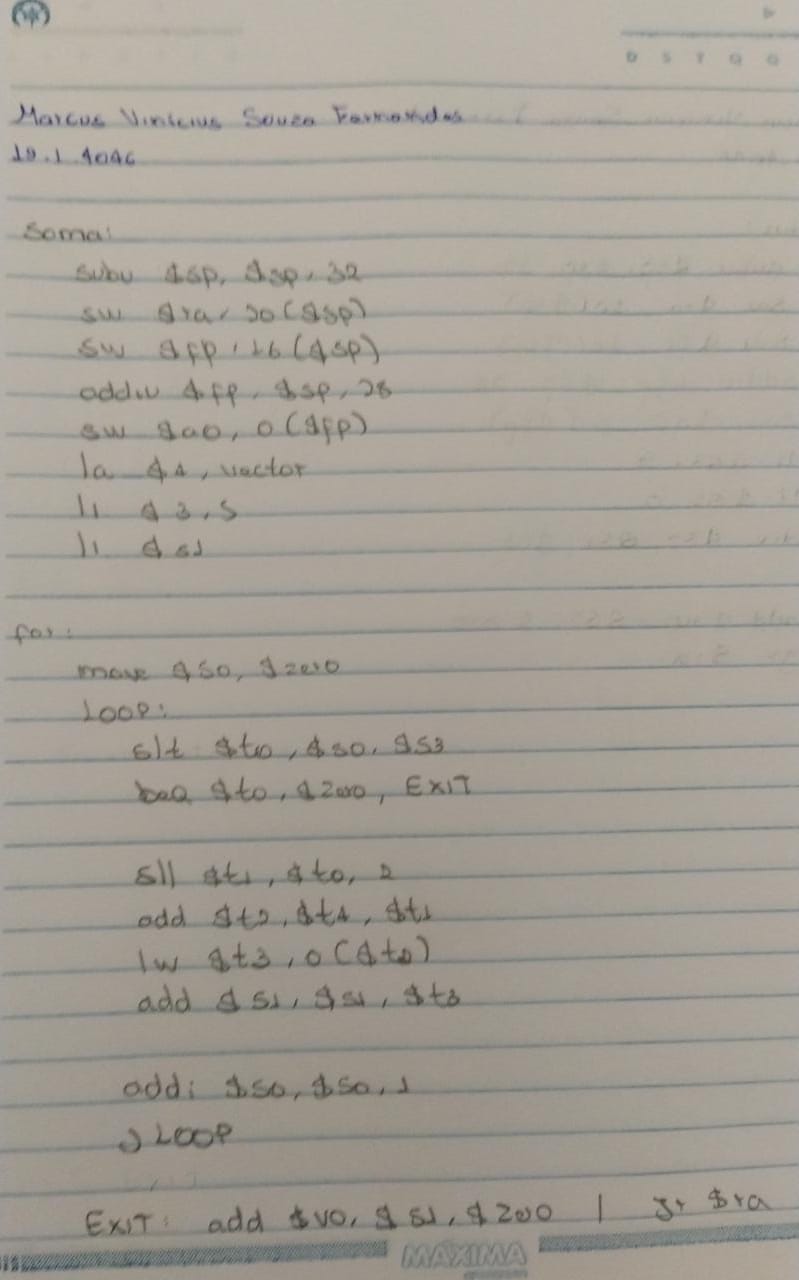 D S T Q Q
Marcus Vinicius Souza Fernandes
19.1.4046
Soma:
subu $sp, $sp, 32
sw $ra, 20($sp)
sw $fp, 16($sp)
addiu $fp, $sp, 28
sw $a0, 0($fp)
la $4, vector
li $3, 5
li $s1
for:
move $s0, $zero
LOOP:
slt $t0, $s0, $s3
beq $t0, $zero, EXIT
sll $t1, $t0, 2
add $t2, $t4, $t1
lw $t3, 0($t2)
add $s1, $s1, $t3
addi $s0, $s0, 1
J LOOP
EXIT: add $v0, $s1, $zero | Jr $ra
MAXIMA